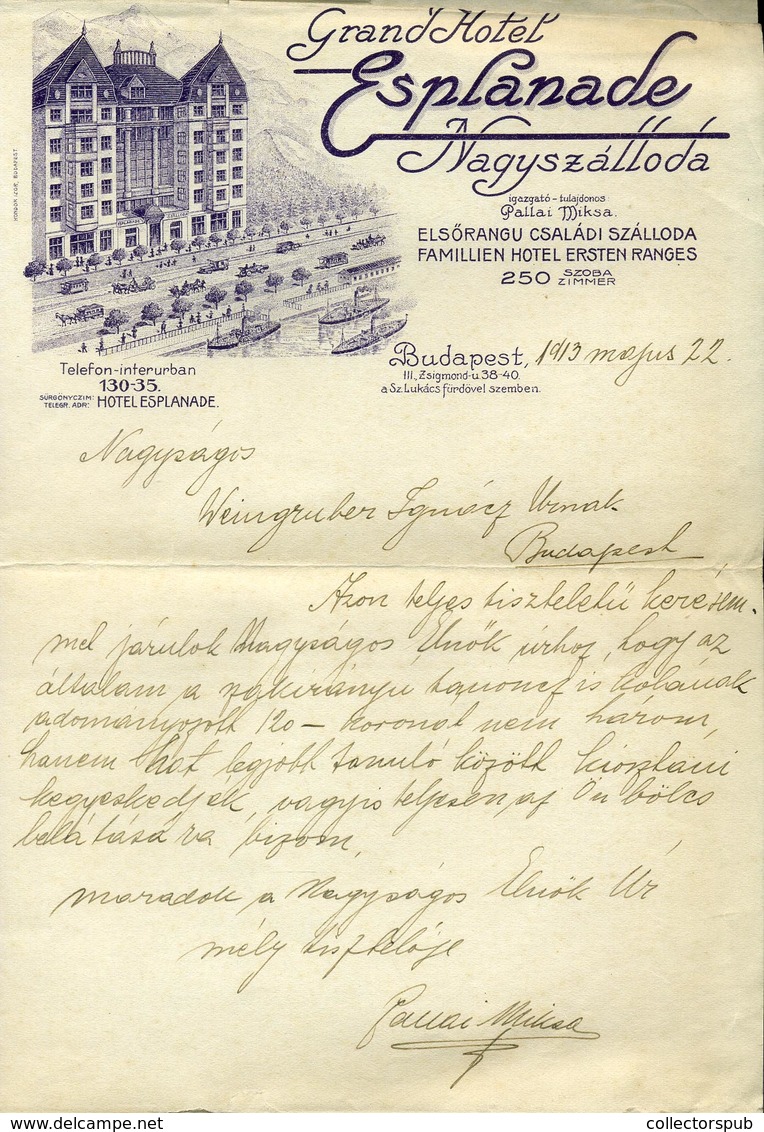 Grand Hotel
Esplanade
Nagyszálloda
igazgató-tulajdonos
Pallai Miksa.
ELSŐRANGU CSALÁDI SZÁLLODA
FAMILLIEN HOTEL ERSTEN RANGES
250 SZOBA ZIMMER
ESPLANADE SZÁLLODA
Telefon-interurban
130-35.
SÜRGÖNYCZIM:
TELEGR. ADR: HOTEL ESPLANADE.
Budapest, 1913 május 22.
III., Zsigmond-u 38-40.
a Sz. Lukács fürdővel szemben.
Nagyságos
Weingruber Ignácz Urnak
Budapest
Azon teljes tiszteletű kérésem-
mel járulok Nagyságos Elnök úrhoz, hogy az
általam a tanoncz iskolának
adományozott 120 – koronát nem három,
hanem hat legjobb tanuló között kiosztani
kegyeskedjék, vagyis teljesen az Ön bölcs
belátására bizom,
maradok a Nagyságos Elnök Úr
mély tisztelője
Pallai Miksa
collectorspub